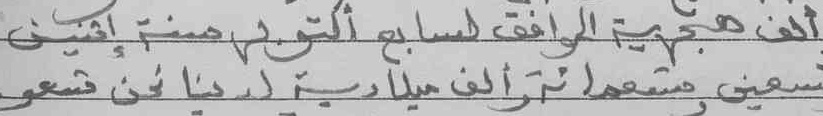 ألف هجرية الموافق لسابع أكتوبر سنة إثنين
تسعين وتسعمائة وألف ميلادية لدينا نحن